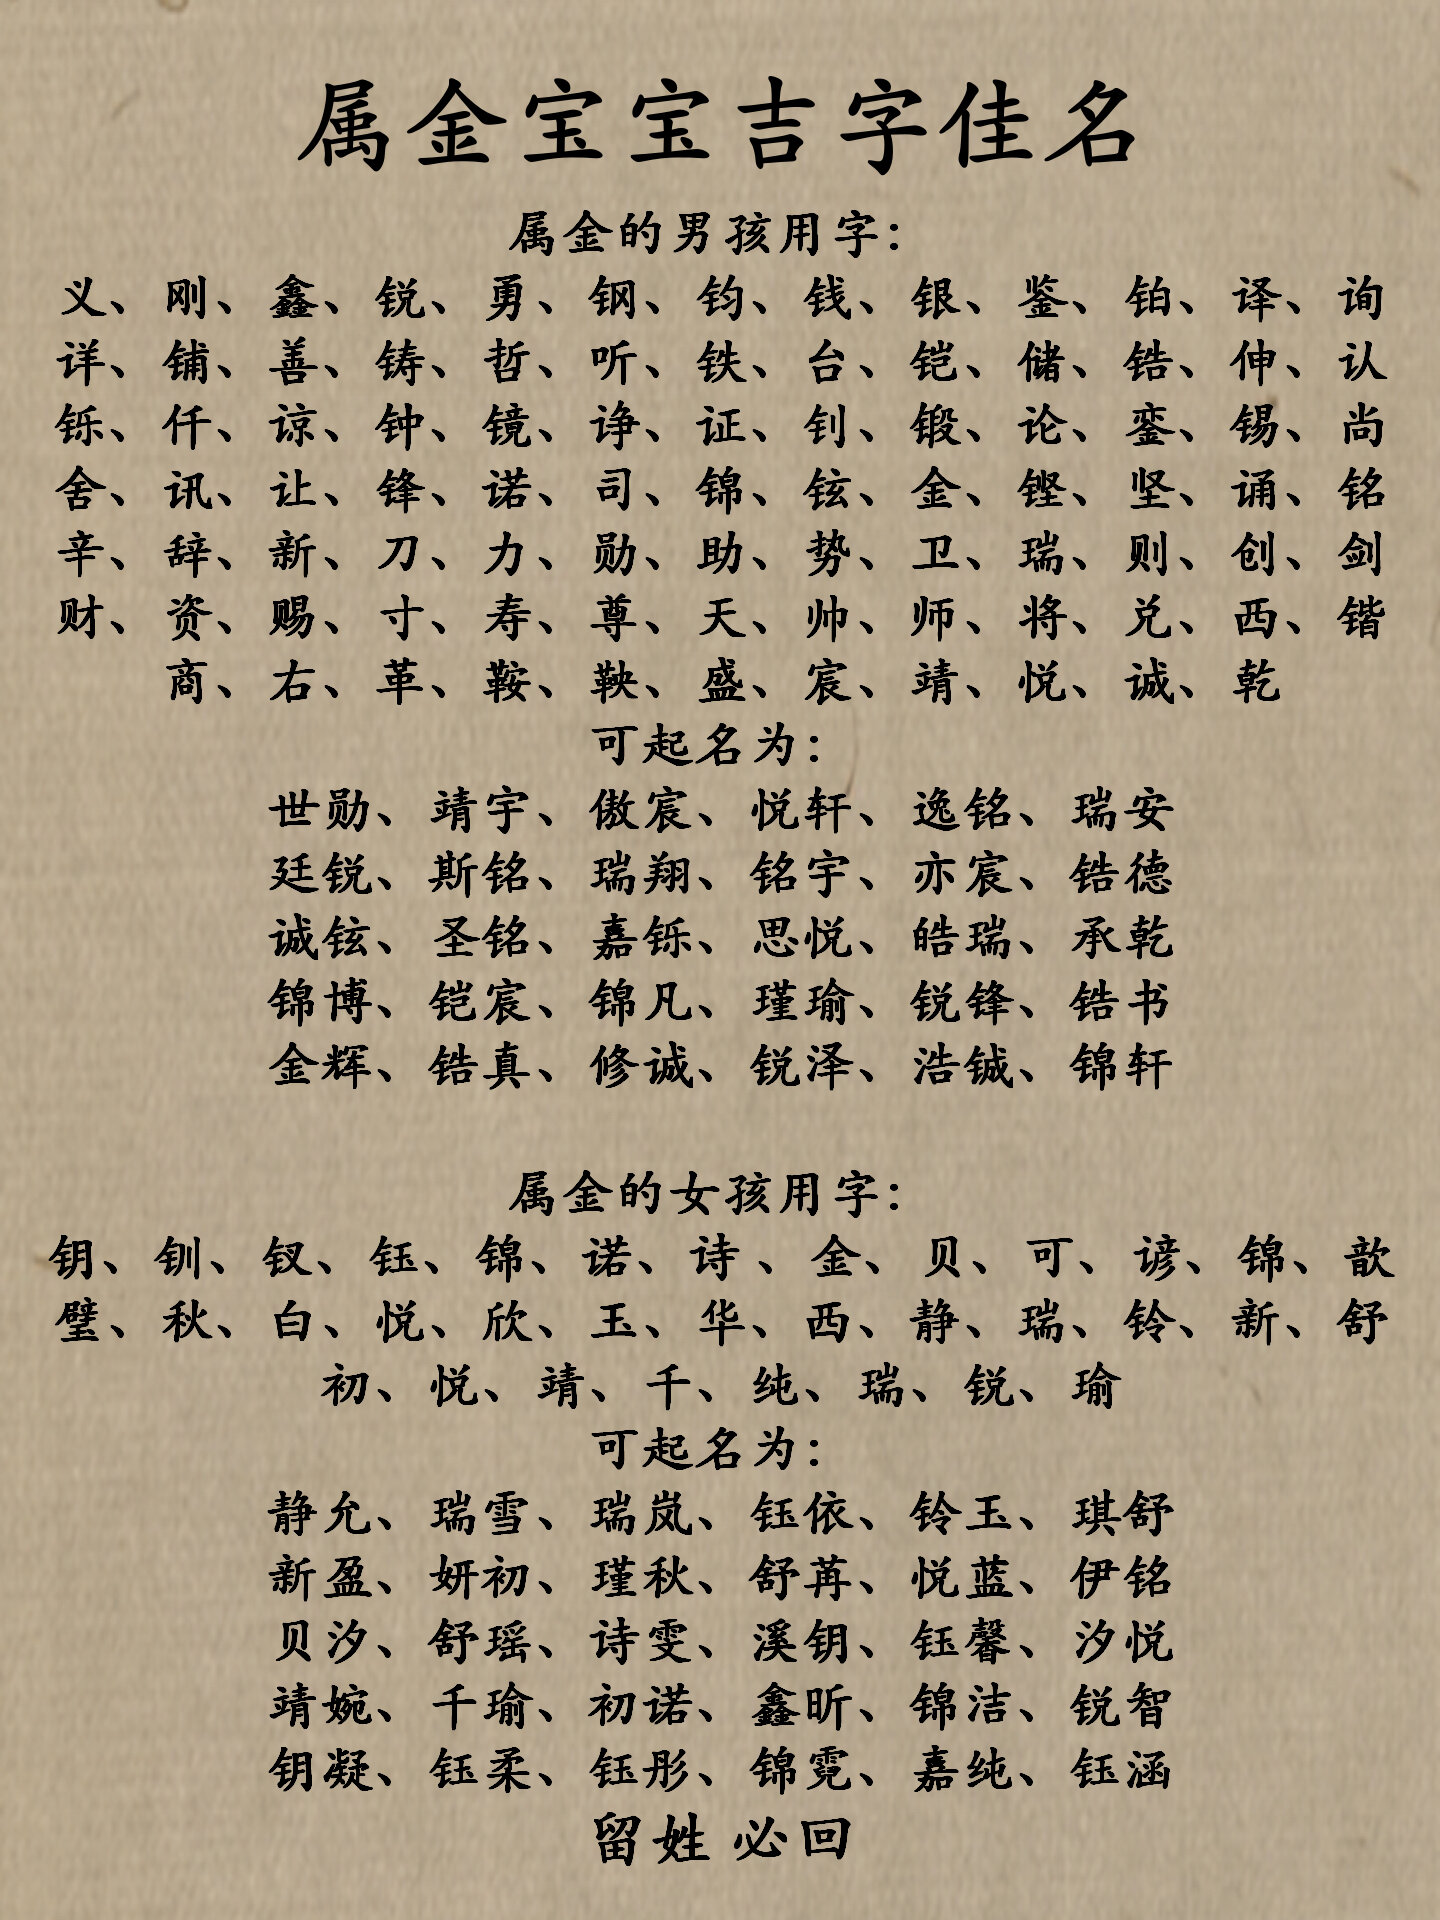 属金宝宝吉字佳名
属金的男孩用字：
义、刚、鑫、锐、勇、钢、钧、钱、银、鉴、铂、译、询
详、铺、善、铸、哲、听、铁、台、铠、储、锆、伸、认
铄、仟、谅、钟、镜、诤、证、钊、锻、论、銮、锡、尚
舍、讯、让、锋、诺、司、锦、铉、金、铿、坚、诵、铭
辛、辞、新、刀、力、勋、助、势、卫、瑞、则、创、剑
财、资、赐、寸、寿、尊、天、帅、师、将、兑、西、锴
商、右、革、鞍、鞅、盛、宸、靖、悦、诚、乾
可起名为：
世勋、靖宇、傲宸、悦轩、逸铭、瑞安
廷锐、斯铭、瑞翔、铭宇、亦宸、锆德
诚铉、圣铭、嘉铄、思悦、皓瑞、承乾
锦博、铠宸、锦凡、瑾瑜、锐锋、锆书
金辉、锆真、修诚、锐泽、浩铖、锦轩
属金的女孩用字：
钥、钏、钗、钰、锦、诺、诗、金、贝、可、谚、锦、歆
璧、秋、白、悦、欣、玉、华、西、静、瑞、铃、新、舒
初、悦、靖、千、纯、瑞、锐、瑜
可起名为：
静允、瑞雪、瑞岚、钰依、铃玉、琪舒
新盈、妍初、瑾秋、舒苒、悦蓝、伊铭
贝汐、舒瑶、诗雯、溪钥、钰馨、汐悦
靖婉、千瑜、初诺、鑫昕、锦洁、锐智
钥凝、钰柔、钰彤、锦霓、嘉纯、钰涵
留姓 必回